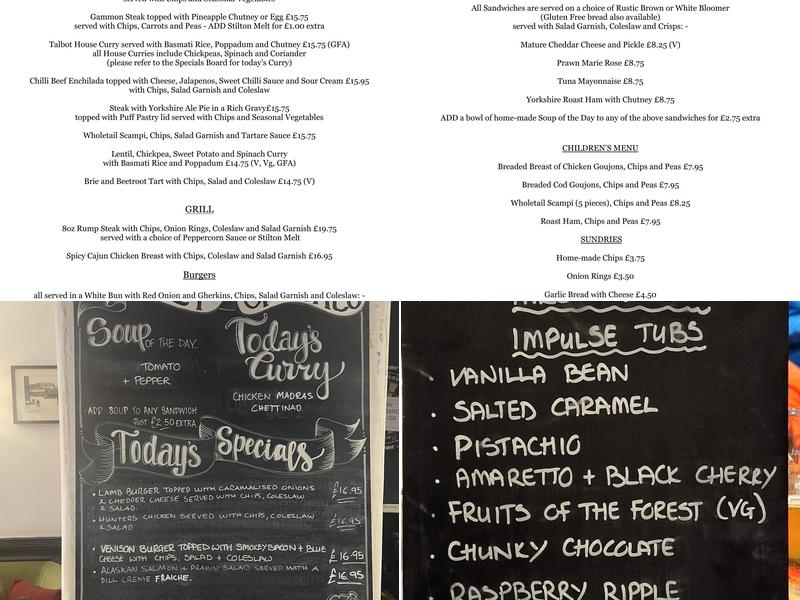 served with Chips and Seasonal Vegetables
Gammon Steak topped with Pineapple Chutney or Egg £15.75
served with Chips, Carrots and Peas - ADD Stilton Melt for £1.00 extra
Talbot House Curry served with Basmati Rice, Poppadum and Chutney £15.75 (GFA)
all House Curries include Chickpeas, Spinach and Coriander
(please refer to the Specials Board for today's Curry)
Chilli Beef Enchilada topped with Cheese, Jalapenos, Sweet Chilli Sauce and Sour Cream £15.95
with Chips, Salad Garnish and Coleslaw
Steak with Yorkshire Ale Pie in a Rich Gravy£15.75
topped with Puff Pastry lid served with Chips and Seasonal Vegetables
Wholetail Scampi, Chips, Salad Garnish and Tartare Sauce £15.75
Lentil, Chickpea, Sweet Potato and Spinach Curry
with Basmati Rice and Poppadum £14.75 (V, Vg, GFA)
Brie and Beetroot Tart with Chips, Salad and Coleslaw £14.75 (V)
GRILL
8oz Rump Steak with Chips, Onion Rings, Coleslaw and Salad Garnish £19.75
served with a choice of Peppercorn Sauce or Stilton Melt
Spicy Cajun Chicken Breast with Chips, Coleslaw and Salad Garnish £16.95
Burgers
all served in a White Bun with Red Onion and Gherkins, Chips, Salad Garnish and Coleslaw: -
All Sandwiches are served on a choice of Rustic Brown or White Bloomer
(Gluten Free bread also available)
served with Salad Garnish, Coleslaw and Crisps: -
Mature Cheddar Cheese and Pickle £8.25 (V)
Prawn Marie Rose £8.75
Tuna Mayonnaise £8.75
Yorkshire Roast Ham with Chutney £8.75
ADD a bowl of home-made Soup of the Day to any of the above sandwiches for £2.75 extra
CHILDREN'S MENU
Breaded Breast of Chicken Goujons, Chips and Peas £7.95
Breaded Cod Goujons, Chips and Peas £7.95
Wholetail Scampi (5 pieces), Chips and Peas £8.25
Roast Ham, Chips and Peas £7.95
SUNDRIES
Home-made Chips £3.75
Onion Rings £3.50
Garlic Bread with Cheese £4.50
Soup OF THE DAY
TOMATO
+ PEPPER
ADD SOUP TO ANY SANDWICH
JUST £2.50 EXTRA
Today's
Curry
CHICKEN MADRAS
CHETTINAD
Today's Specials
• LAMB BURGER TOPPED WITH CARAMALISED ONIONS
& CHEDDER CHEESE SERVED WITH CHIPS, COLESLAW
& SALAD. £16.95
• HUNTERS CHICKEN SERVED WITH CHIPS, COLESLAW
& SALAD £16.95
• VENISON BURGER TOPPED WITH SMOKEY BACON + BLUE
CHEESE WITH CHIPS, SALAD + COLESLAW £16.95
• ALASKAN SALMON + PRAWN SALAD SERVED WITH A
DILL CREME FRAICHE. £16.95
IMPULSE TUBS
• VANILLA BEAN
• SALTED CARAMEL
• PISTACHIO
• AMARETTO + BLACK CHERRY
• FRUITS OF THE FOREST (VG)
• CHUNKY CHOCOLATE
• RASPBERRY RIPPLE